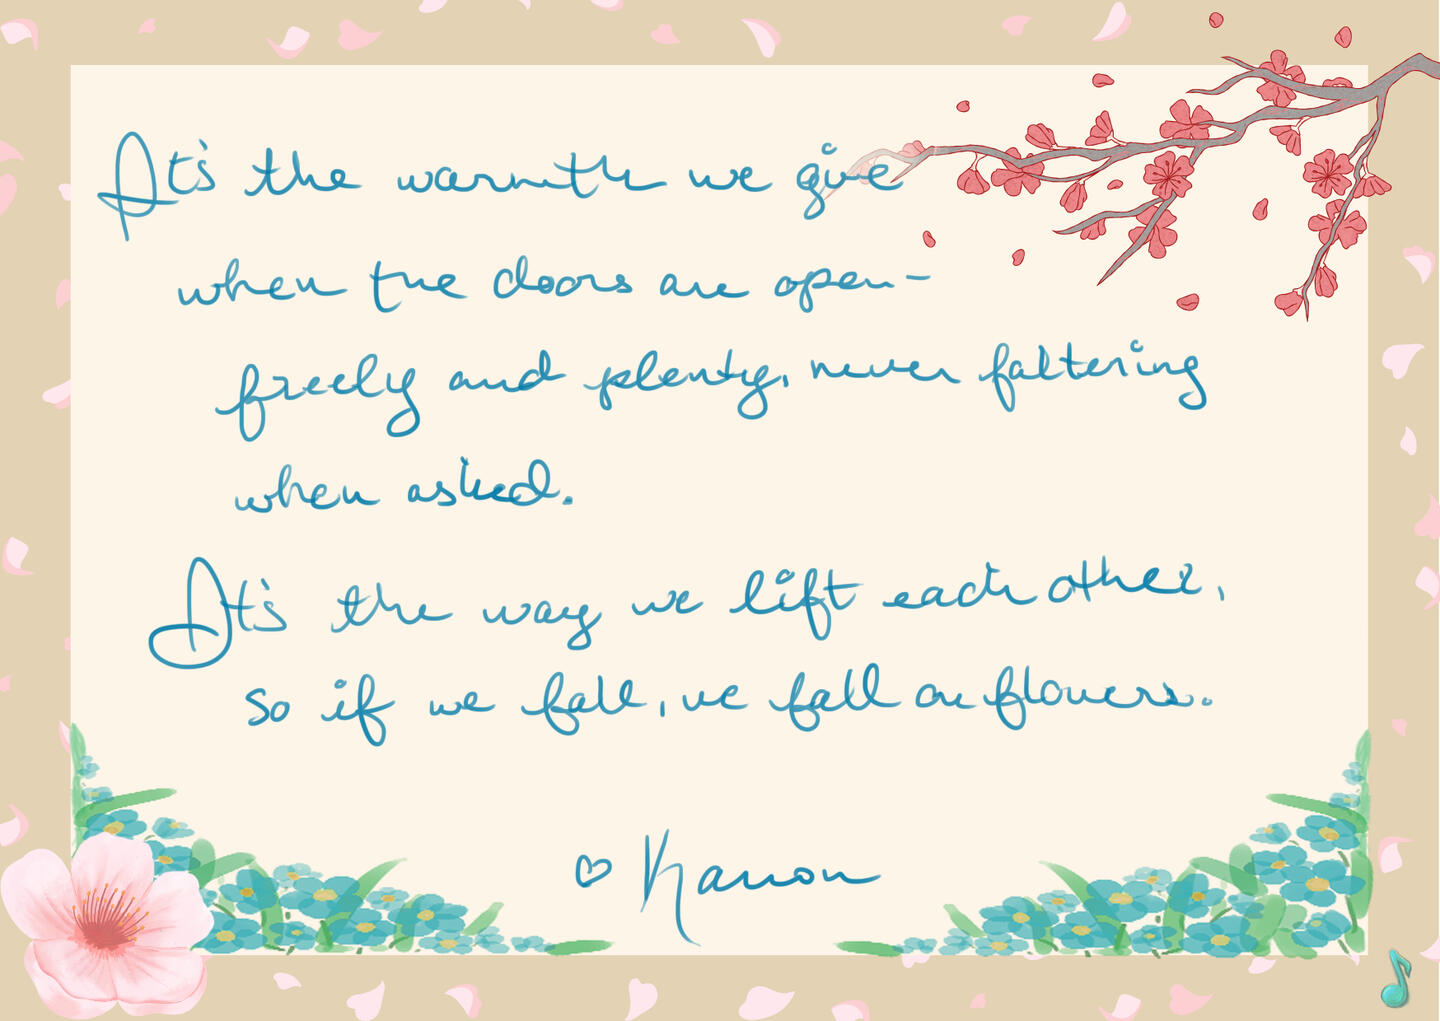 It's the warmth we give
when the doors are open-
freely and plenty, never faltering
when asked.
It's the way we lift each other,
so if we fall, we fall on flowers.
♡ Kanon